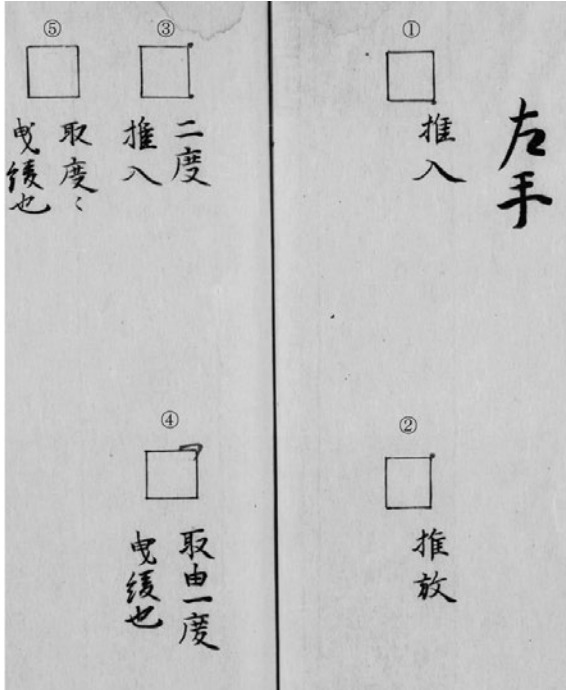 左手
①
推入
②
推放
③
二度
推入
④
取由一度
曳緩也
⑤
取度〻
曳緩也